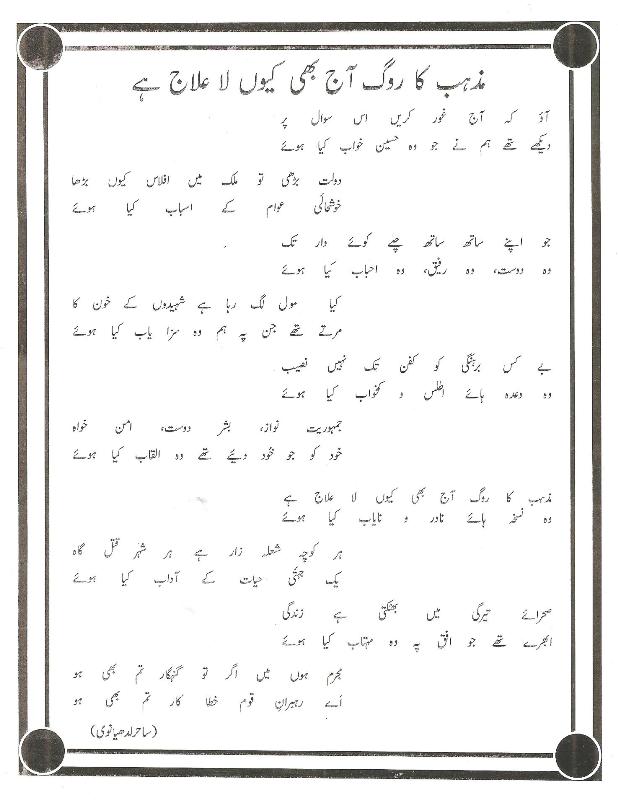 مذہب کا روگ آج بھی کیوں لا علاج ہے
آؤ کہ آج غور کریں اس سوال پر
دیکھے تھے ہم نے جو وہ حسین خواب کیا ہوئے
دولت بڑھی تو ملک میں افلاس کیوں بڑھا
خوشحائی عوام کے اسباب کیا ہوئے
جو اپنے ساتھ ساتھ چلے کوئے دار تک
وہ دوست، وہ رفیق، وہ احباب کیا ہوئے
کیا مول لگ رہا ہے شہیدوں کے خون کا
مرتے تھے جن پہ ہم وہ سزا یاب کیا ہوئے
بے کس برہنگی کو کفن تک نہیں نصیب
وہ وعدہ ہائے اطلس و کمخواب کیا ہوئے
جمہوریت نواز، بشر دوست، امن خواہ
خود کو جو خود دیئے تھے وہ القاب کیا ہوئے
مذہب کا روگ آج بھی کیوں لا علاج ہے
وہ نسخہ ہائے نادر و نایاب کیا ہوئے
ہر کوچہ شعلہ زار ہے ہر شہر قتل گاہ
یک جہتی حیات کے آداب کیا ہوئے
صحرائے تیرگی میں بھٹکتی ہے زندگی
ابھرے تھے جو افق پہ وہ مہتاب کیا ہوئے
مجرم ہوں میں اگر تو گنہگار تم بھی ہو
اے رہبرانِ قوم خطا کار تم بھی ہو
(ساحر لدھیانوی)